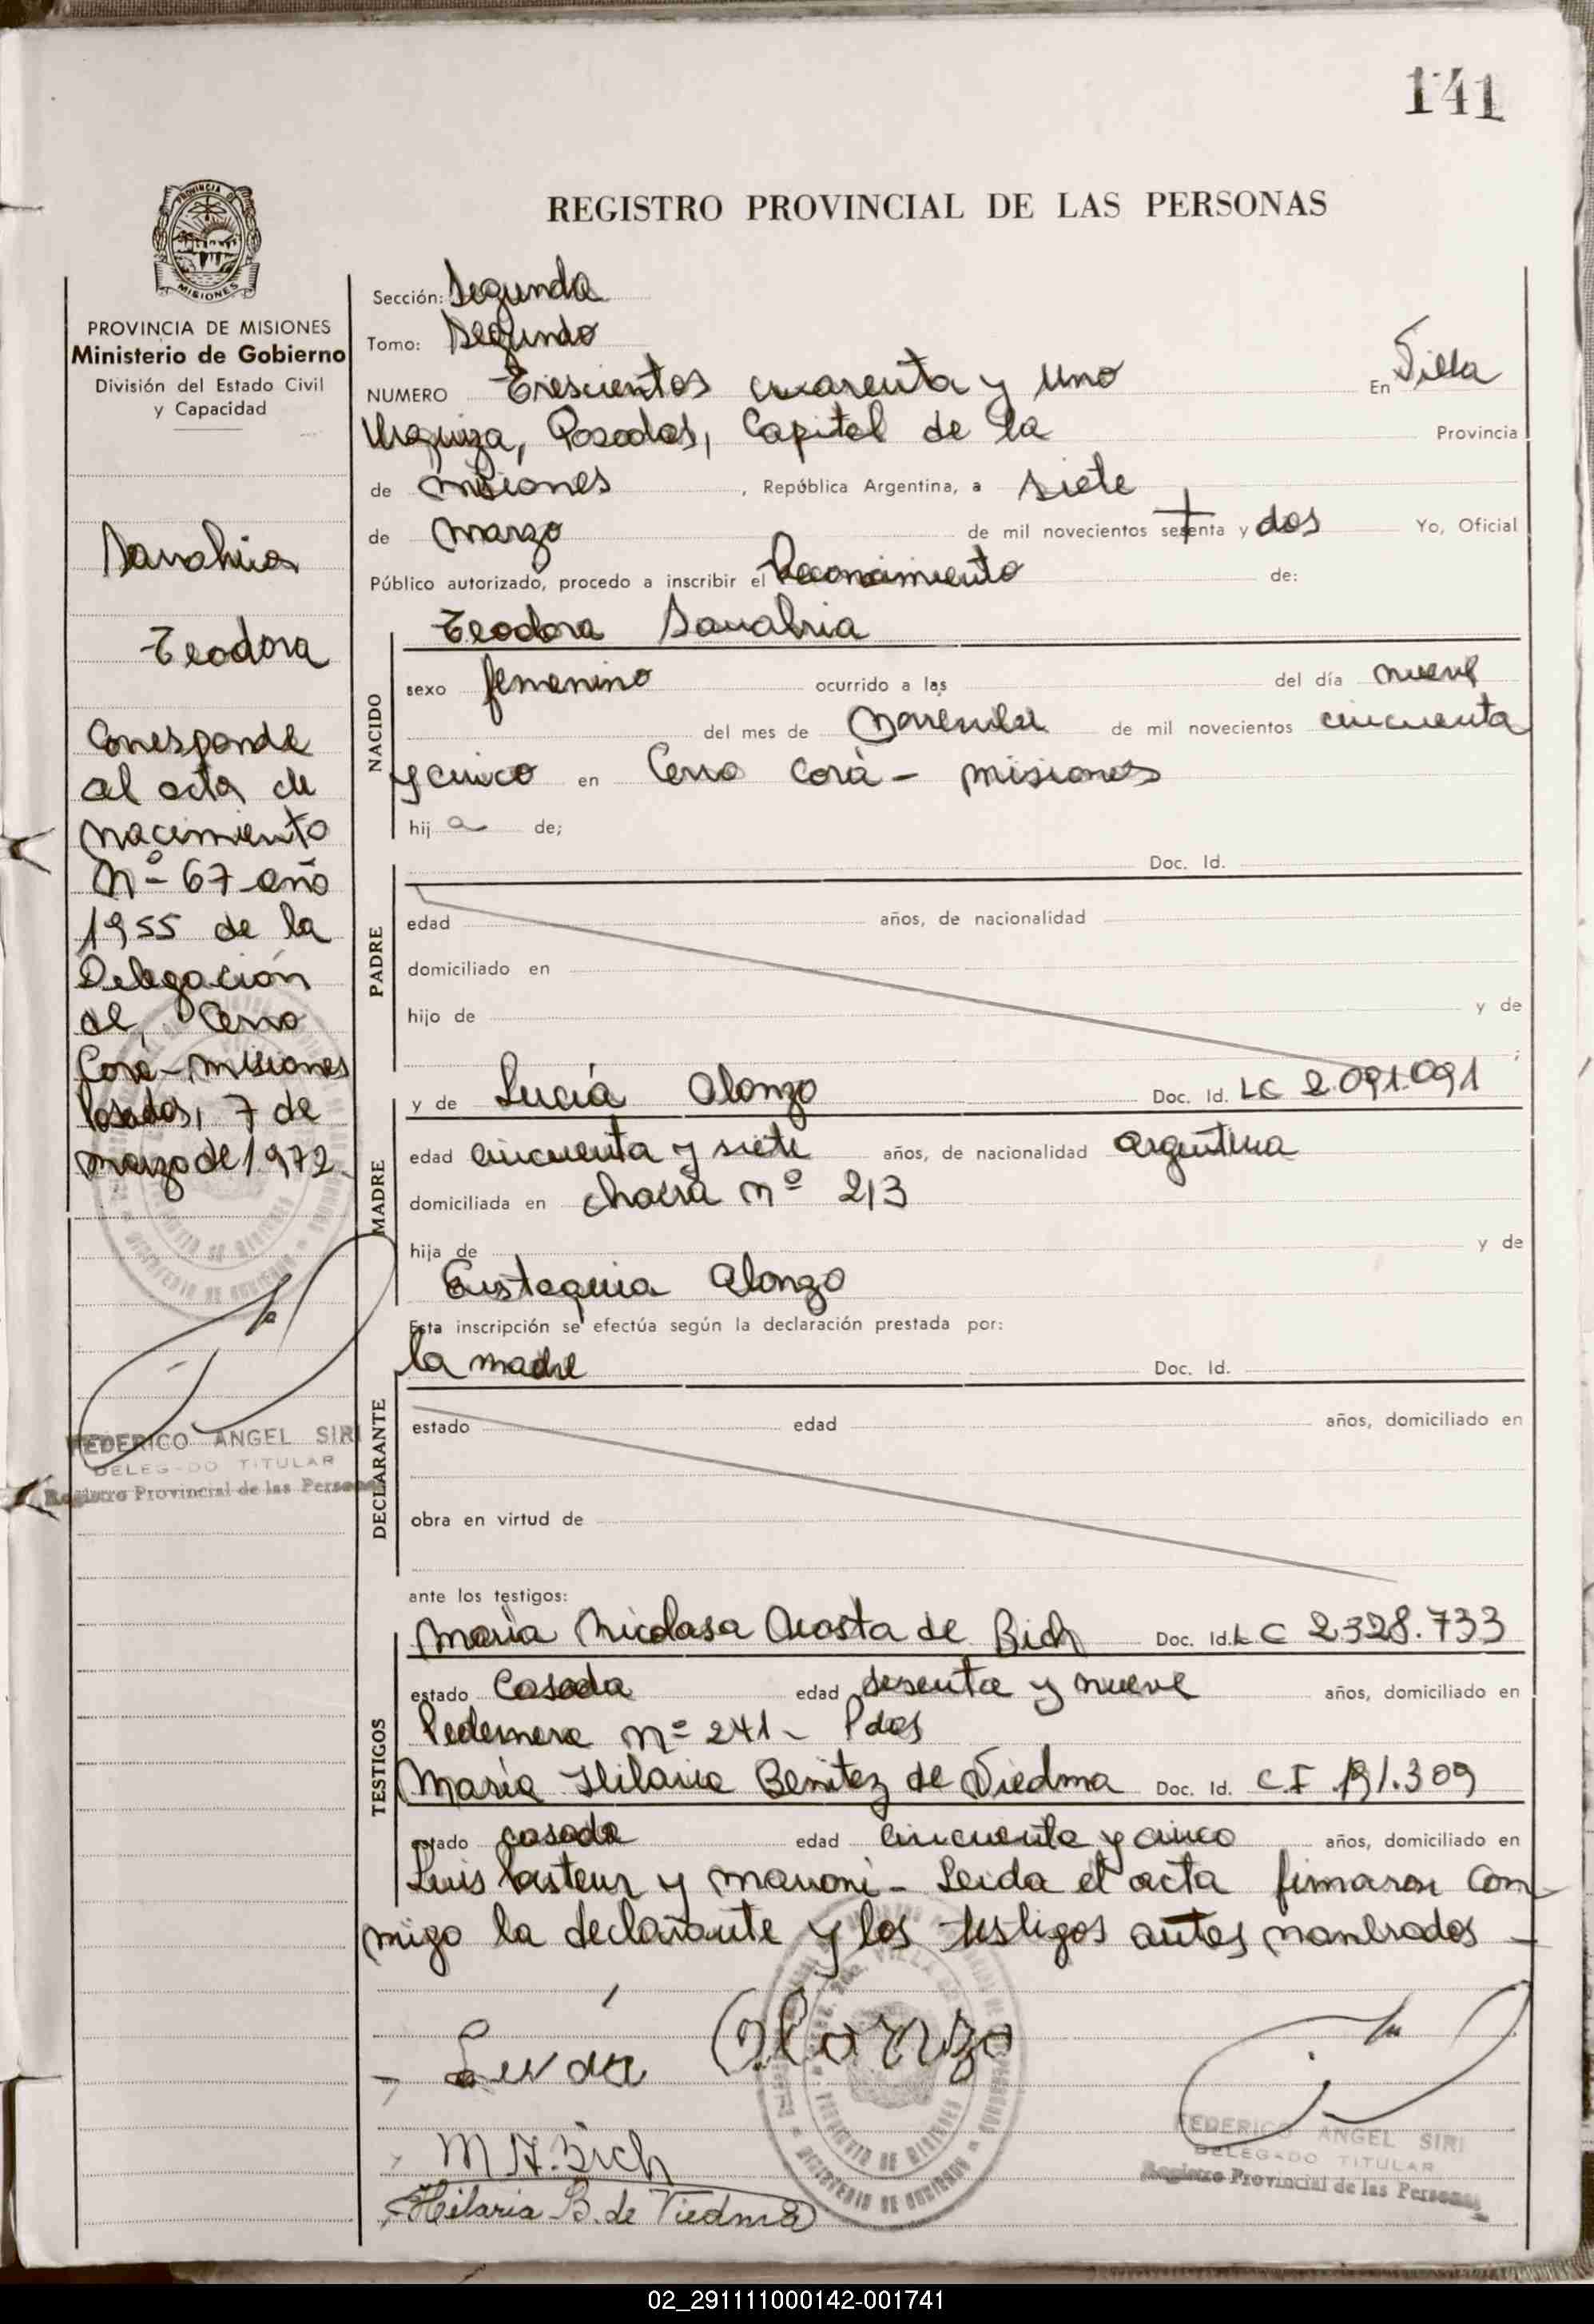 141
PROVINCIA DE
MISIONES
REGISTRO PROVINCIAL DE LAS PERSONAS
PROVINCIA DE MISIONES
Ministerio de Gobierno
División del Estado Civil
y Capacidad
Sanabria
Teodora
Corresponde
al acta de
nacimiento
Nº 67 año
1955 de la
Delegación
de Cerro
Corá - Misiones
Posadas, 7 de
marzo de 1972
FEDERICO ANGEL SIRI
DELEGADO TITULAR
Registro Provincial de las Personas
Sección: Segunda
Tomo: Segundo
NUMERO Trescientos cuarenta y uno En Villa
Urquiza, Posadas, Capital de la Provincia
de Misiones, República Argentina, a siete
de marzo de mil novecientos setenta y dos Yo, Oficial
Público autorizado, procedo a inscribir el Reconocimiento de:
Teodora Sanabria
NACIDO
sexo femenino ocurrido a las del día nueve
del mes de Noviembre de mil novecientos cincuenta
y cinco en Cerro Corá - Misiones
hija de;
PADRE
Doc. Id.
edad años, de nacionalidad
domiciliado en
hijo de y de
;
MADRE
y de Lucía Alonzo Doc. Id. LC 2.091.091
edad cincuenta y siete años, de nacionalidad argentina
domiciliada en chacra nº 213
hija de y de
Eustaquia Alonzo
Esta inscripción se efectúa según la declaración prestada por:
la madre Doc. Id.
DECLARANTE
estado edad años, domiciliado en
obra en virtud de
ante los testigos:
TESTIGOS
María Nicolasa Acosta de Bich Doc. Id. LC 2328.733
estado Casada edad sesenta y nueve años, domiciliado en
Pedernera nº 241 - Pdas
María Hilaria Benitez de Viedma Doc. Id. C.I 191.309
estado casada edad cincuenta y cinco años, domiciliado en
Luis Pasteur y Marconi - Leida el acta firmaron con-
migo la declarante y los testigos antes nombrados -
Lucía Alonzo
M A. Bich
Hilaria B. de Viedma
FEDERICO ANGEL SIRI
DELEGADO TITULAR
Registro Provincial de las Personas
02_291111000142-001741